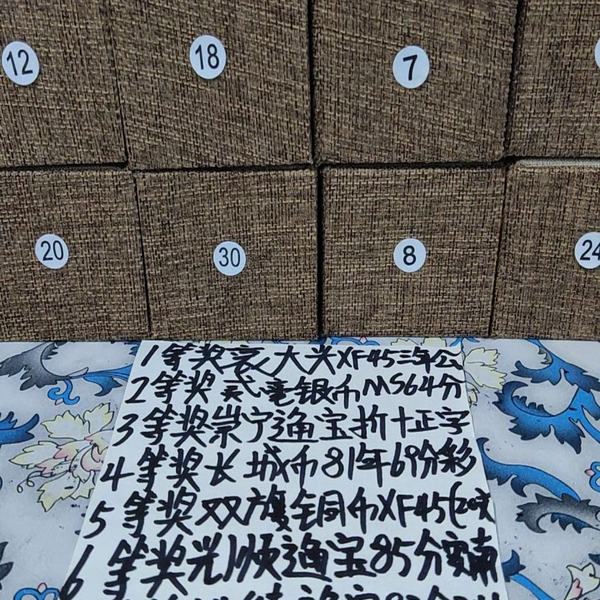 12 18 7
20 30 8 24
1等奖袁大头XF45三年公
2等奖贰毫银币MS64分
3等奖崇宁通宝折十正字
4等奖长城币81年69分彩
5等奖双旗铜币XF45(20文
6等奖光绪通宝85分宝南